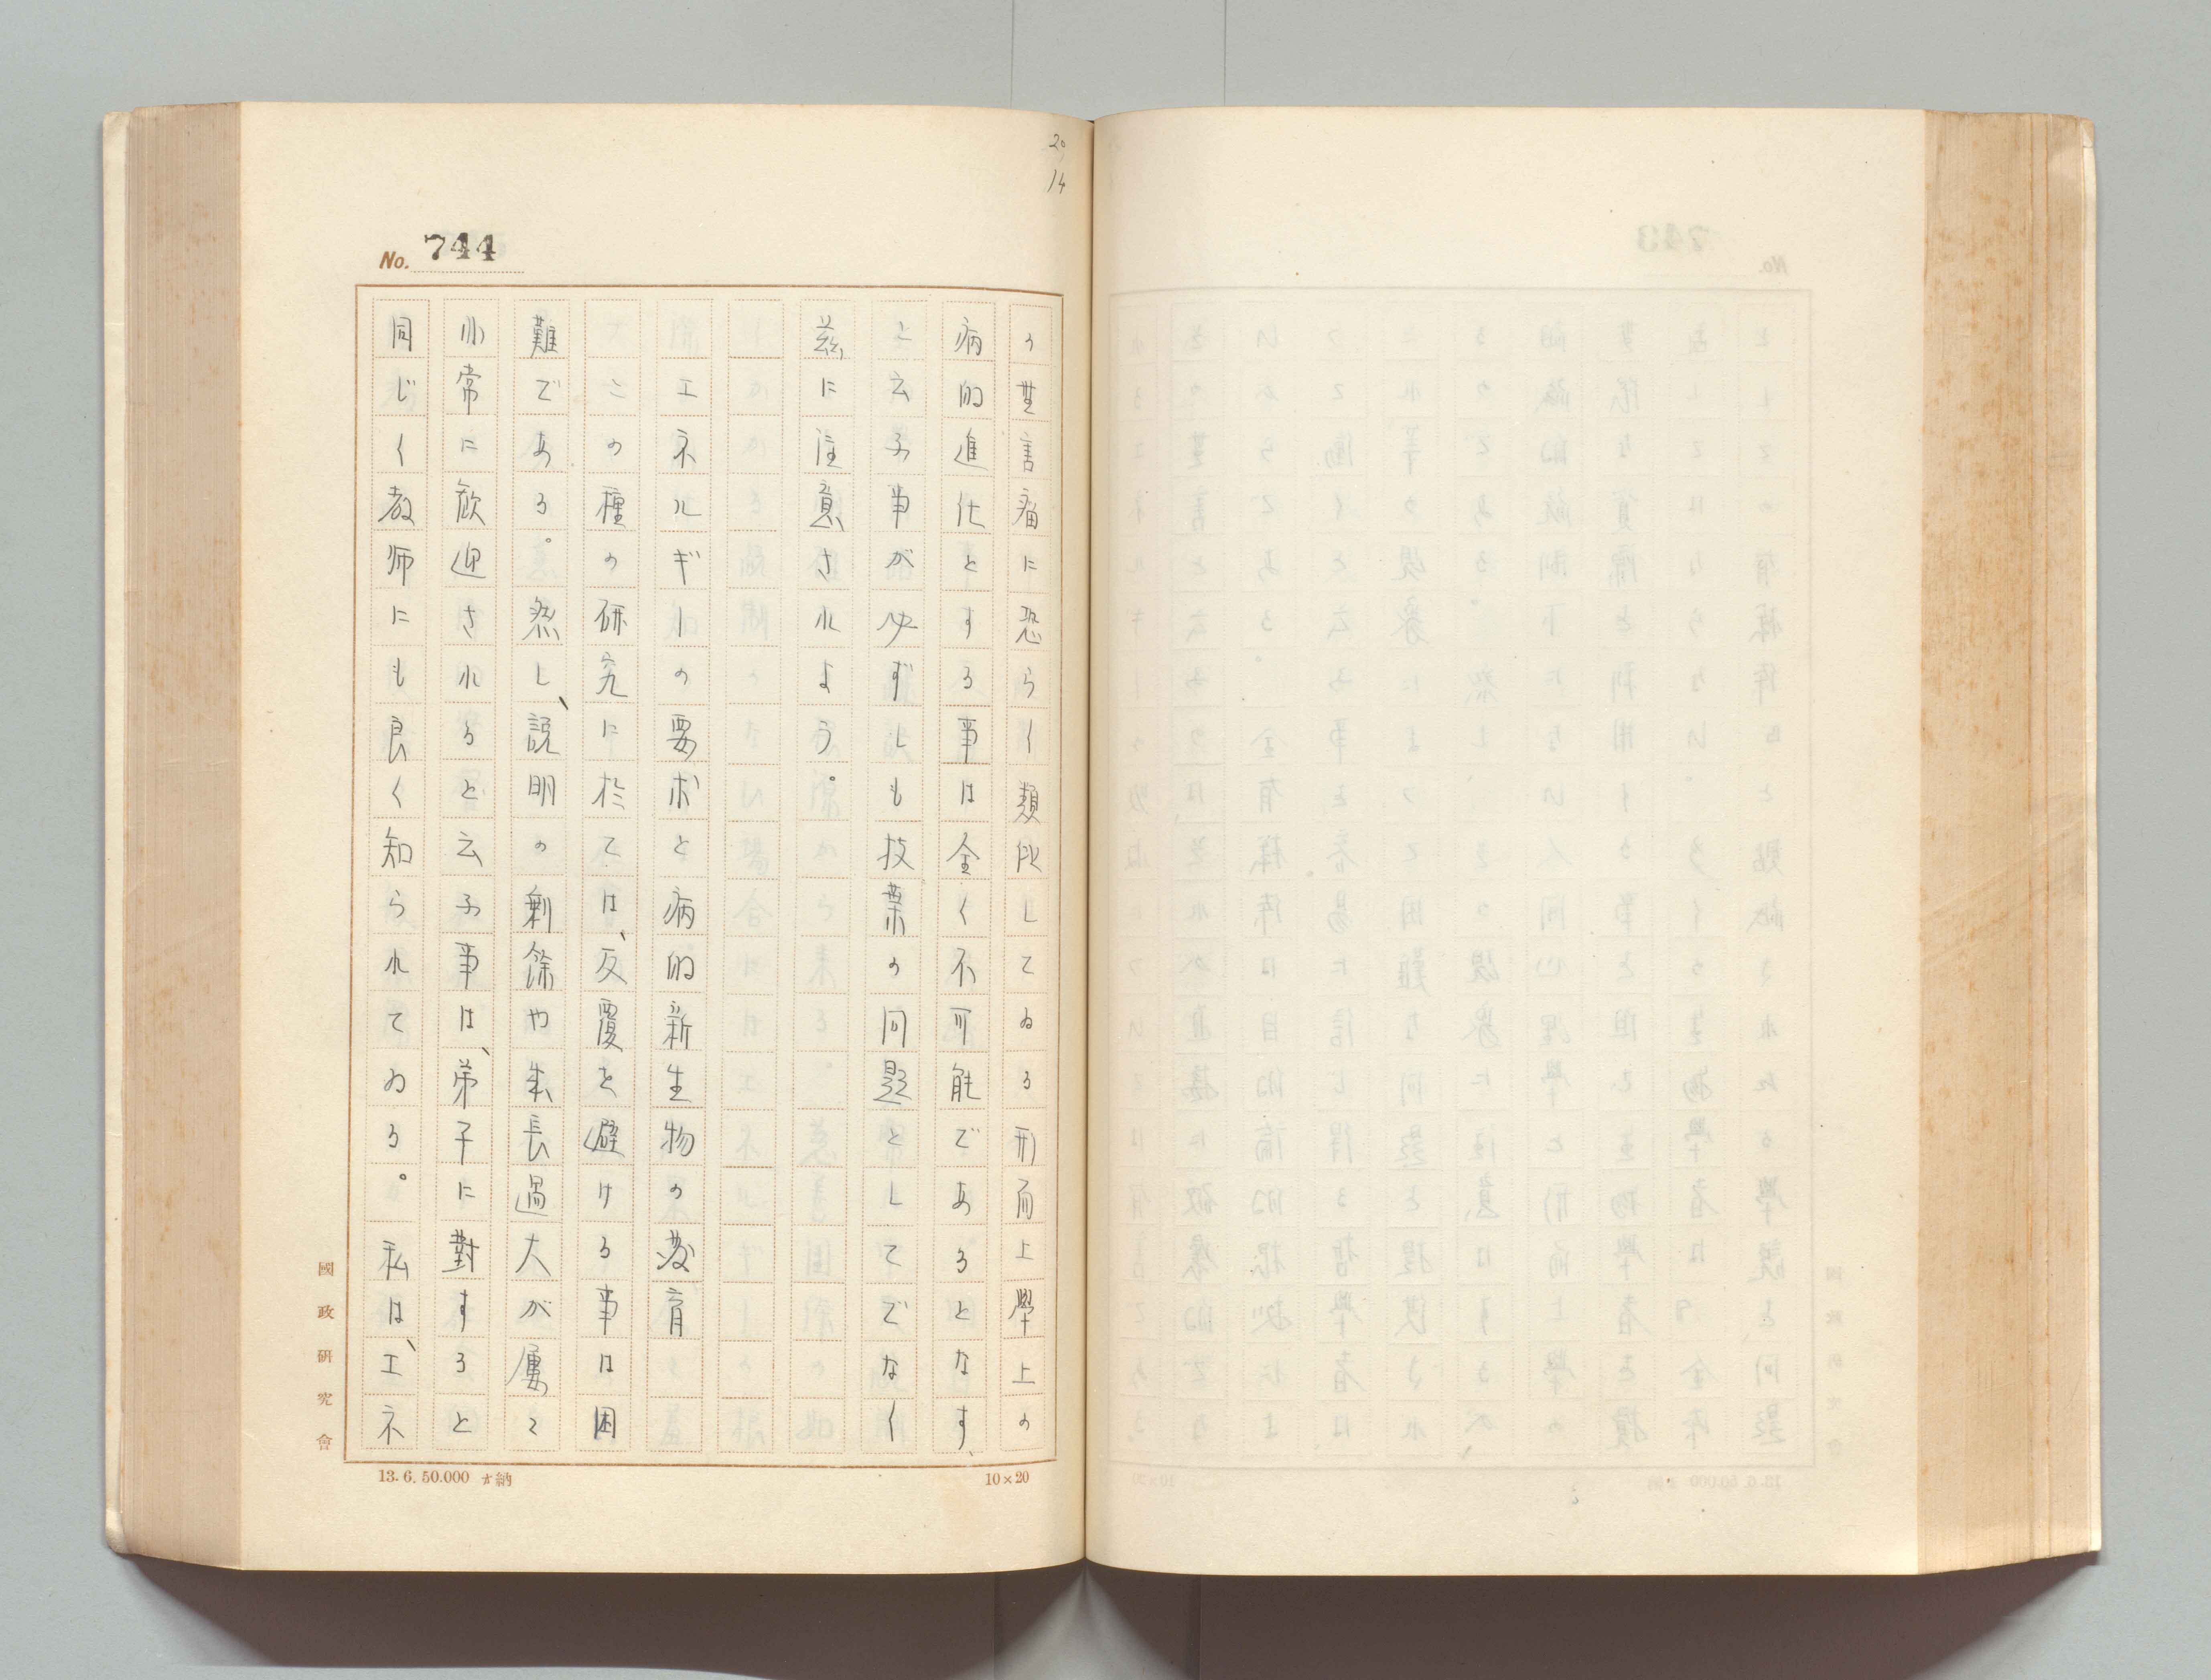 20
14
No. 744
の無害癌に恐らく類似してゐる形而上學上の
病的進化とする事は全く不可能であるとなす、
と云ふ事が必ずしも枝葉の問題としてでなく
茲に注意されよう。
エネルギーの要求と病的新生物の發育
この種の研究に於ては、反覆を避ける事は困
難である。然し、説明の剰餘や生長過大が屢〻
非常に歓迎されると云ふ事は、弟子に對すると
同じく教師にも良く知られてゐる。私は、エネ
國政研究會
13.6.50.000 納
10×20